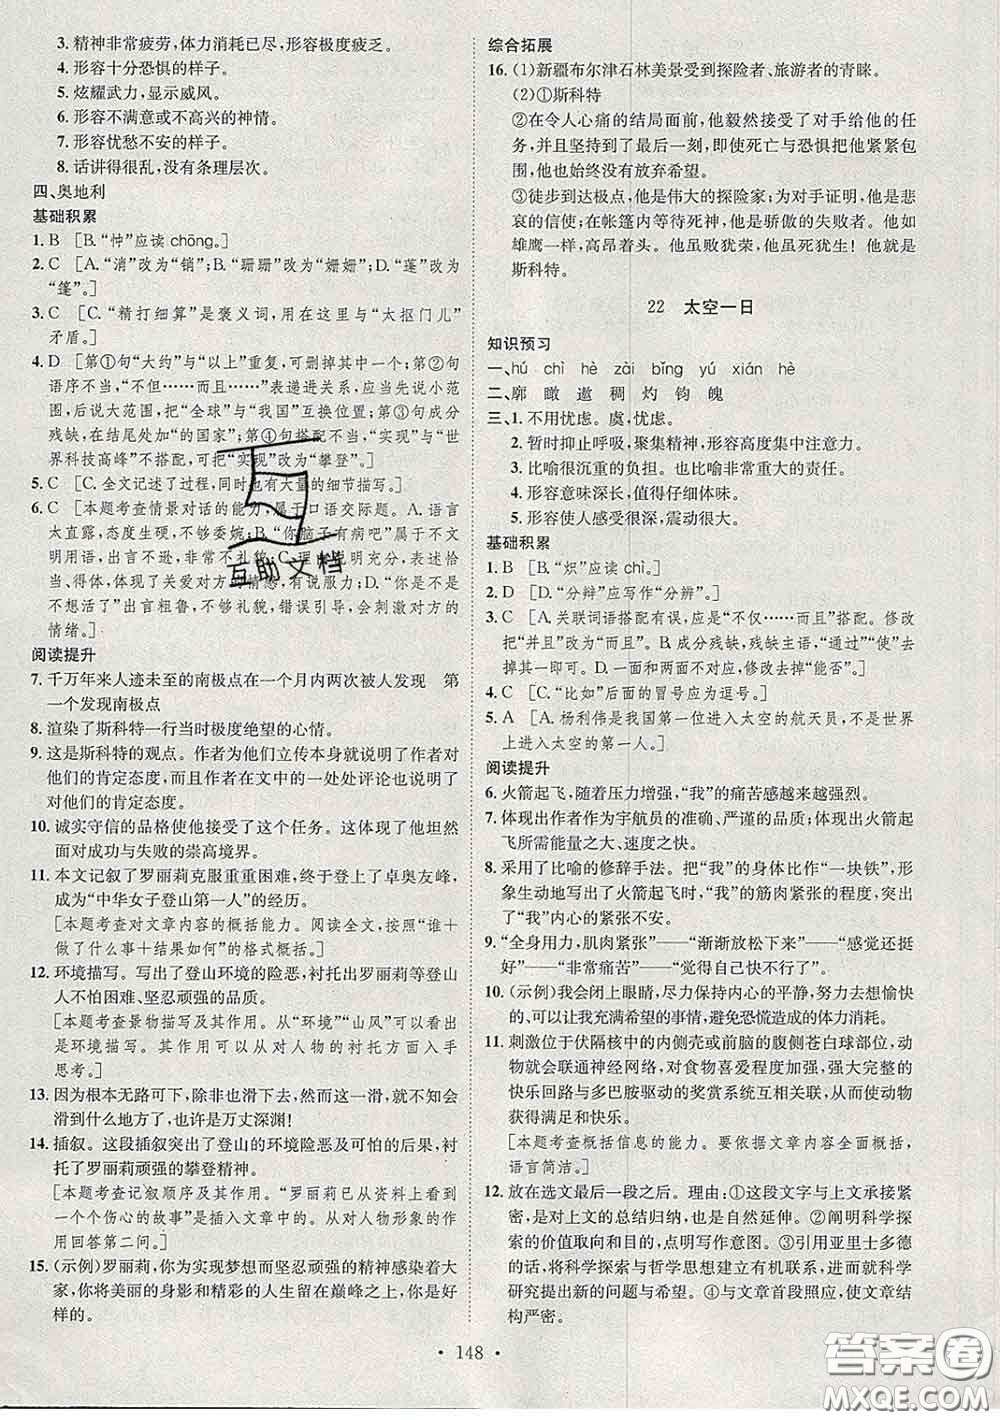 3. 精神非常疲劳,体力消耗已尽,形容极度疲乏。
4. 形容十分恐惧的样子。
5. 炫耀武力,显示威风。
6. 形容不满意或不高兴的神情。
7. 形容忧愁不安的样子。
8. 话讲得很乱,没有条理层次。
四、奥地利
基础积累
1. B [B.“忡”应读 chōng。]
2. C [A.“消”改为“销”;B.“珊珊”改为“姗姗”;D.“蓬”改为
“篷”。]
3. C [C.“精打细算”是褒义词,用在这里与“太抠门儿”
矛盾。]
4. D [第①句“大约”与“以上”重复,可删掉其中一个;第②句
语序不当,“不但……而且……”表递进关系,应当先说小范
围,后说大范围,把“全球”与“我国”互换位置;第③句成分
残缺,在结尾处加“的国家”;第④句搭配不当,“实现”与“世
界科技高峰”不搭配,可把“实现”改为“攀登”。]
5. C [C.全文记述了过程,同时也有大量的细节描写。]
6. C [本题考查情景对话的能力,属于口语交际题。A.语言
太直露,态度生硬,不够委婉;B.“你脑子有病吧”属于不文
明用语,出言不逊,非常不礼貌;C.理由说明充分,表达很
得体,体现了关爱对方的情感,有礼貌;D.“你是不是
不想活了”出言粗鲁,不够礼貌,错误引导,会刺激对方的
情绪。]
阅读提升
7. 千万年来人迹未至的南极点在一个月内两次被人发现 第
一个发现南极点
8. 渲染了斯科特一行当时极度绝望的心情。
9. 这是斯科特的观点。作者为他们立传本身就说明了作者对
他们的肯定态度,而且作者在文中的一处处评论也说明了
对他们的肯定态度。
10. 诚实守信的品格使他接受了这个任务。这体现了他坦然
面对成功与失败的崇高境界。
11. 本文记叙了罗丽莉克服重重困难,终于登上了卓奥友峰,
成为“中华女子登山第一人”的经历。
[本题考查对文章内容的概括能力。阅读全文,按照“谁+
做了什么事+结果如何”的格式概括。]
12. 环境描写。写出了登山环境的险恶,衬托出罗丽莉等登山
人不怕困难、坚忍顽强的品质。
[本题考查景物描写及其作用。从“环境”“山风”可以看出
是环境描写。其作用可以从对人物的衬托方面入手
思考。]
13. 因为根本无路可下,除非也滑下去,然而这一滑,就不知会
滑到什么地方了,也许是万丈深渊!
14. 插叙。这段插叙突出了登山的环境险恶及可怕的后果,衬
托了罗丽莉顽强的攀登精神。
[本题考查记叙顺序及其作用。“罗丽莉已从资料上看到
一个个伤心的故事”是插入文章中的。从对人物形象的作
用回答第二问。]
15. (示例)罗丽莉,你为实现梦想而坚忍顽强的精神感染着大
家,你将美丽的身影和精彩的人生留在巅峰之上,你是好
样的。
综合拓展
16. (1)新疆布尔津石林美景受到探险者、旅游者的青睐。
(2)①斯科特
②在令人心痛的结局面前,他毅然接受了对手给他的任
务,并坚持到了最后一刻,即使死亡与恐惧把他紧紧包
围,他也始终没有放弃希望。
③徒步到达极点,他是伟大的探险家;为对手证明,他是悲
哀的信使;在帐篷内等待死神,他是骄傲的失败者。他如
雄鹰一样,高昂着头。他虽败犹荣,他虽死犹生!他就是
斯科特。
22 太空一日
知识预习
一、hú chì hè zài bǐng yú xián hè
二、廓 瞰 遨 稠 灼 钧 魄
三、1. 不用忧虑。虞,忧虑。
2. 暂时抑止呼吸,聚集精神,形容高度集中注意力。
3. 比喻很沉重的负担。也比喻非常重大的责任。
4. 形容意味深长,值得仔细体味。
5. 形容使人感受很深,震动很大。
基础积累
1. B [B.“炽”应读 chì。]
2. D [D.“分辩”应写作“分辨”。]
3. C [A.关联词语搭配有误,应为“不仅……而且”,修改时
把“并且”改为“而且”。B.成分残缺,缺主语,“通过”“使”去
掉其一即可。D.一面和两面不对应,修改去掉“能否”。]
4. C [C.“比如”后面的冒号应为逗号。]
5. A [A.杨利伟是我国第一位进入太空的航天员,不是世界
上进入太空的第一人。]
阅读提升
6. 火箭起飞,随着压力增强,“我”的痛苦感越来越强烈。
7. 体现出作者作为宇航员的准确、严谨的品质;体现出火箭起
飞所需能量之大、速度之快。
8. 采用了比喻的修辞手法。把“我”的身体比作“一块铁”,形
象生动地写出了火箭起飞时,“我”的筋肉紧张的程度,突出
了“我”内心的紧张不安。
9. “全身用力,肌肉紧张”——“渐渐放松下来”——“感觉还挺
好”——“非常痛苦”——“觉得自己快不行了”
10. (示例)我会闭上眼睛,尽力保持内心的平静,努力去想愉快
的、可以让我充满希望的事情,避免恐慌造成的体力消耗。
11. 刺激位于伏隔核中的内侧壳或前脑的腹侧苍白球部位,动
物就会联通神经网络,对食物喜爱程度加强,这一特定的
快乐回路与多巴胺驱动的奖赏系统互相关联,可以使动物
获得满足和快乐。
[本题考查概括信息的能力。要依据文章内容全面概括,
语言简洁。]
12. 放在选文最后一段之后。理由:①这段文字与上文承接紧
密,是对上文的总结归纳,也是自然延伸。②阐明科学探
索的价值取向和目的,点明写作意图。③引用亚里士多德
的话,将科学探索与哲学思想建立有机联系,由此就科学
研究提出新的问题与希望。④与文章首段照应,使文章结
构严密。
· 148 ·
互助文档
答案圈
MXQE.COM